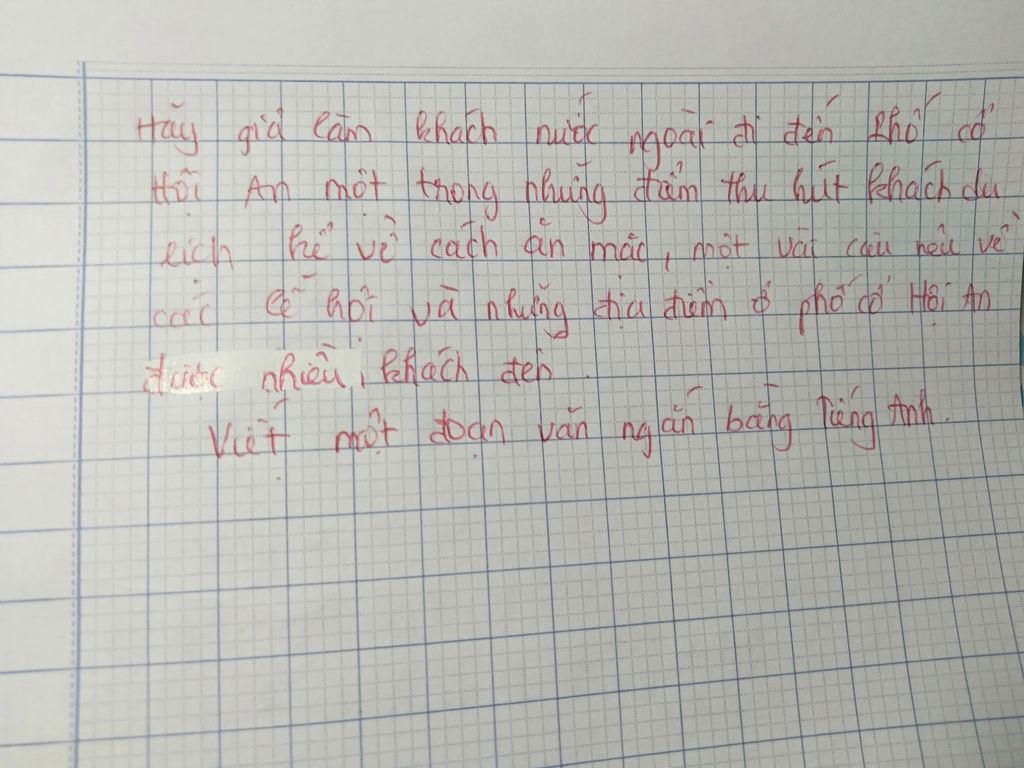 Hãy giả làm khách nước ngoài đi đến phố cổ
Hội An một trong những điểm thu hút khách du
lịch kể về cách ăn mặc, một vài câu nêu về
các lễ hội và những địa điểm ở phố cổ Hội An
được nhiều khách đến.
Viết một đoạn văn ngắn bằng Tiếng Anh.